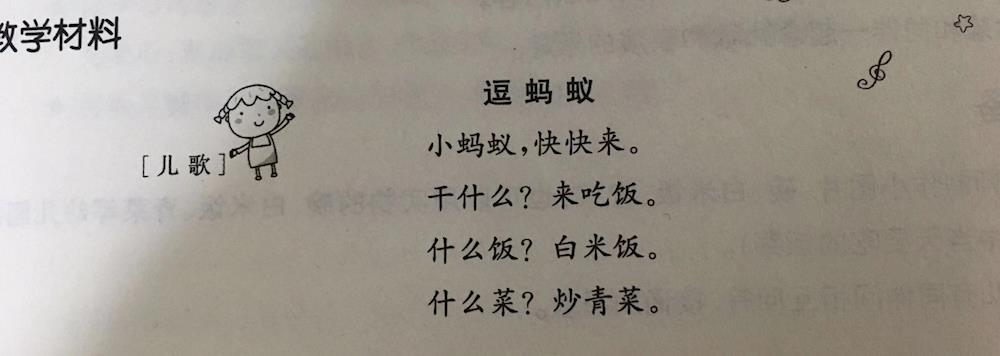 教学材料
逗蚂蚁
[儿歌]
小蚂蚁,快快来。
干什么?来吃饭。
什么饭?白米饭。
什么菜?炒青菜。